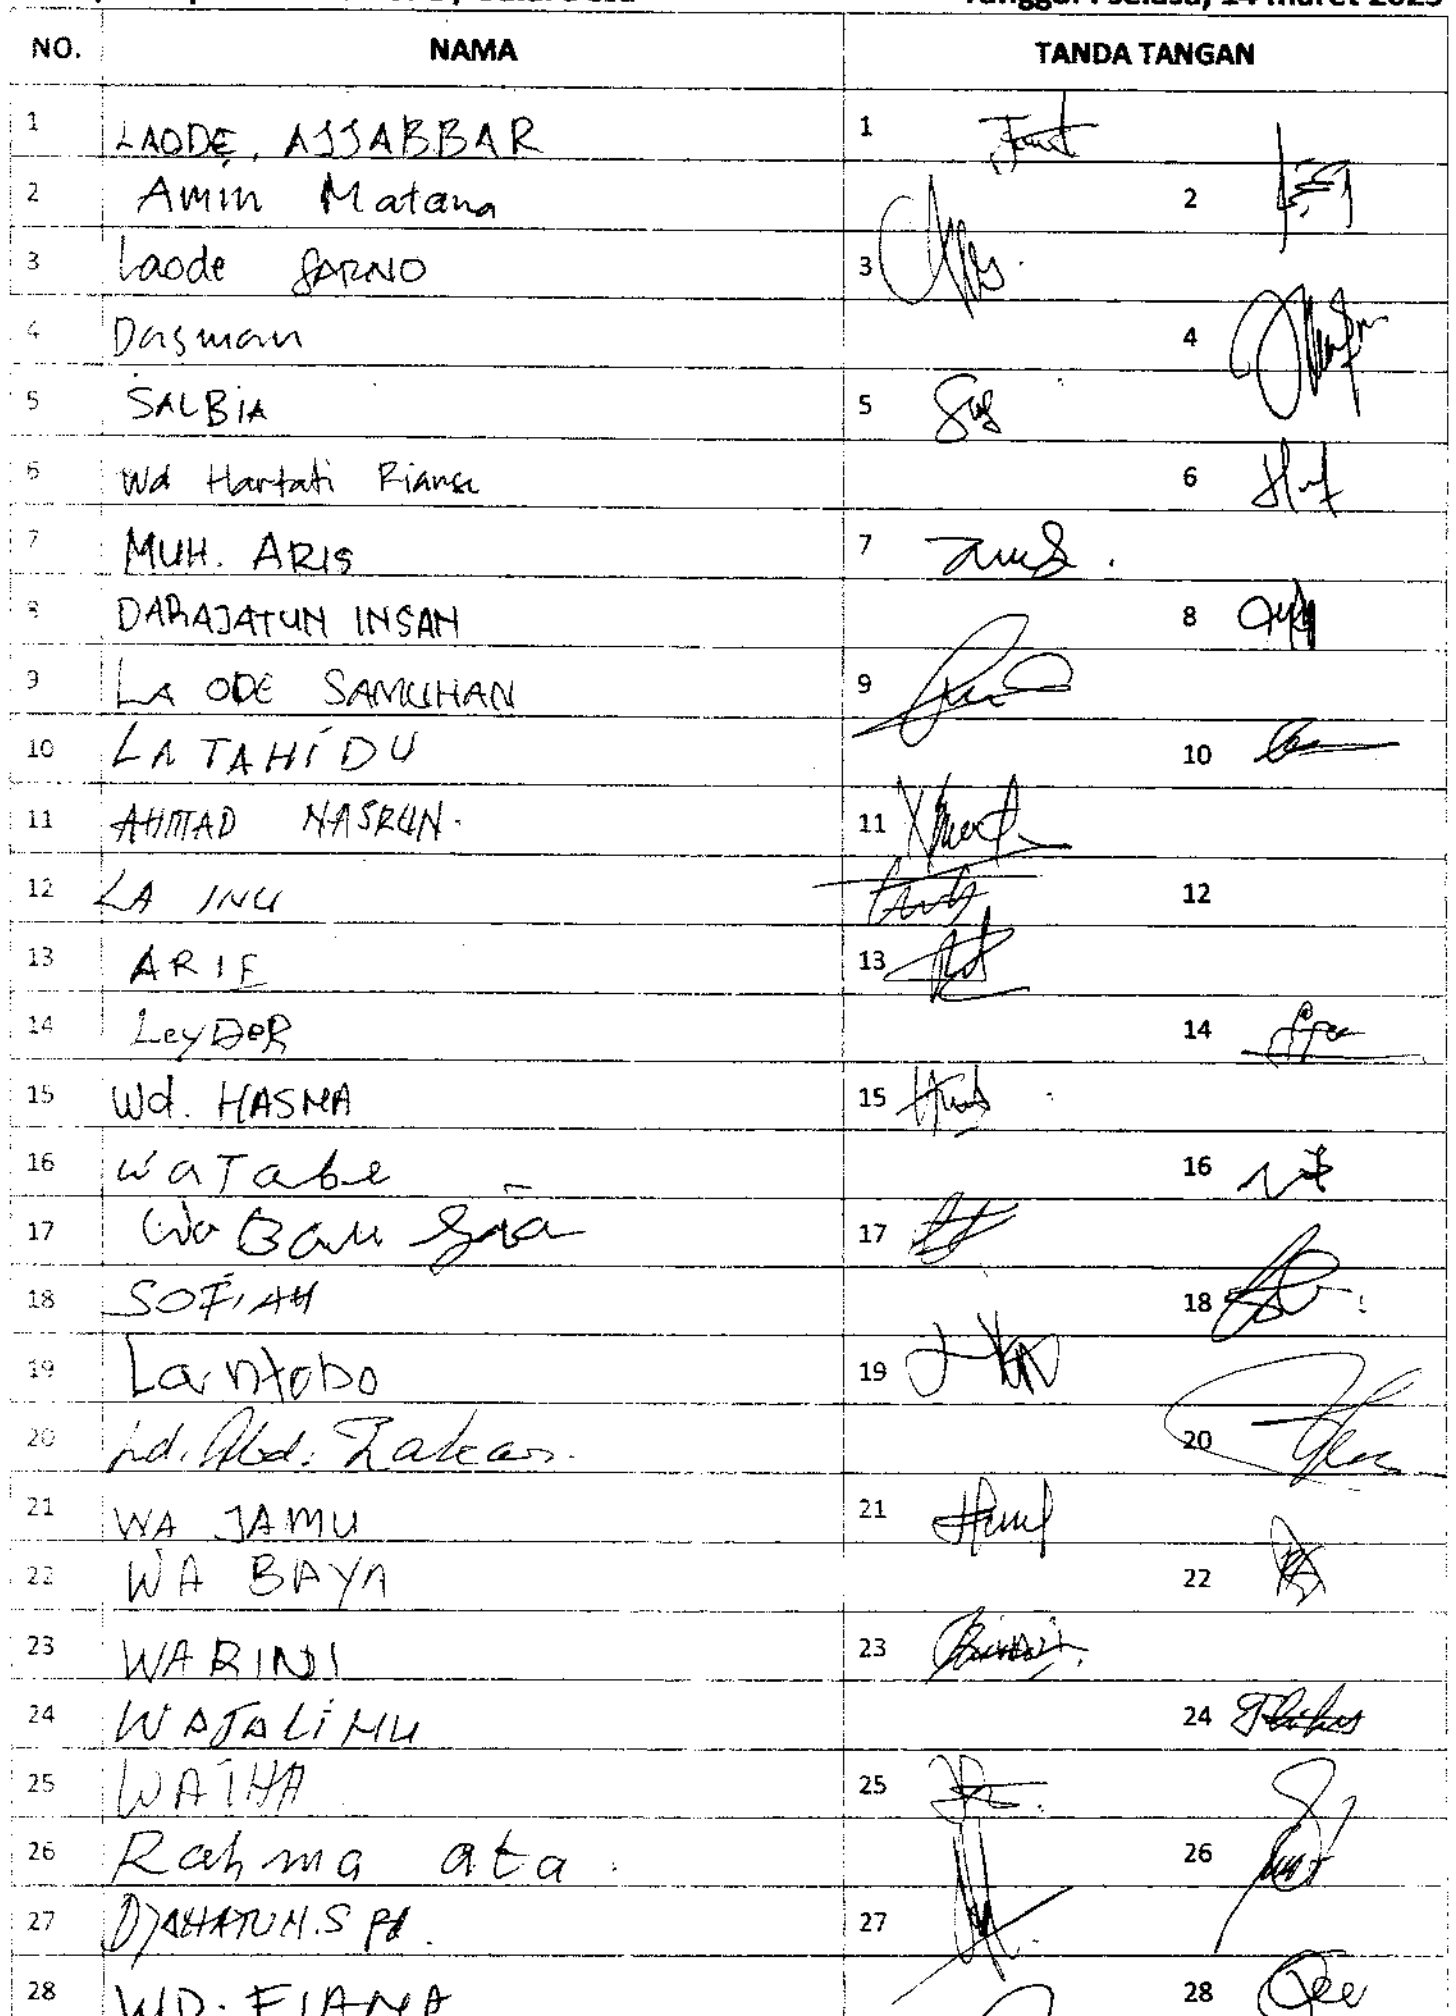 Tanggal : Selasa, 14 Maret 2023
NO. NAMA TANDA TANGAN
1 LAODE, AJJABBAR 1
2 Amin Matana 2
3 Laode SARNO 3
4 Dasman 4
5 SALBIA 5
6 Wd Hartati Rianse 6
7 MUH. ARIS 7
8 DARAJATUN INSAN 8
9 LA ODE SAMUHAN 9
10 LA TAHIDU 10
11 AHMAD NASRUN. 11
12 LA INU 12
13 ARIF 13
14 LeyDeR 14
15 Wd. HASMA 15
16 WaTabe 16
17 Wa Bau 17
18 SOFIAH 18
19 Lantobo 19
20 Ld. Abd. 20
21 WA JAMU 21
22 WA BAYA 22
23 WARINI 23
24 WAJALiMU 24
25 WAIHA 25
26 Rahma ata 26
27 DJAHATUN.S Pd. 27
28 WD. FIANA 28